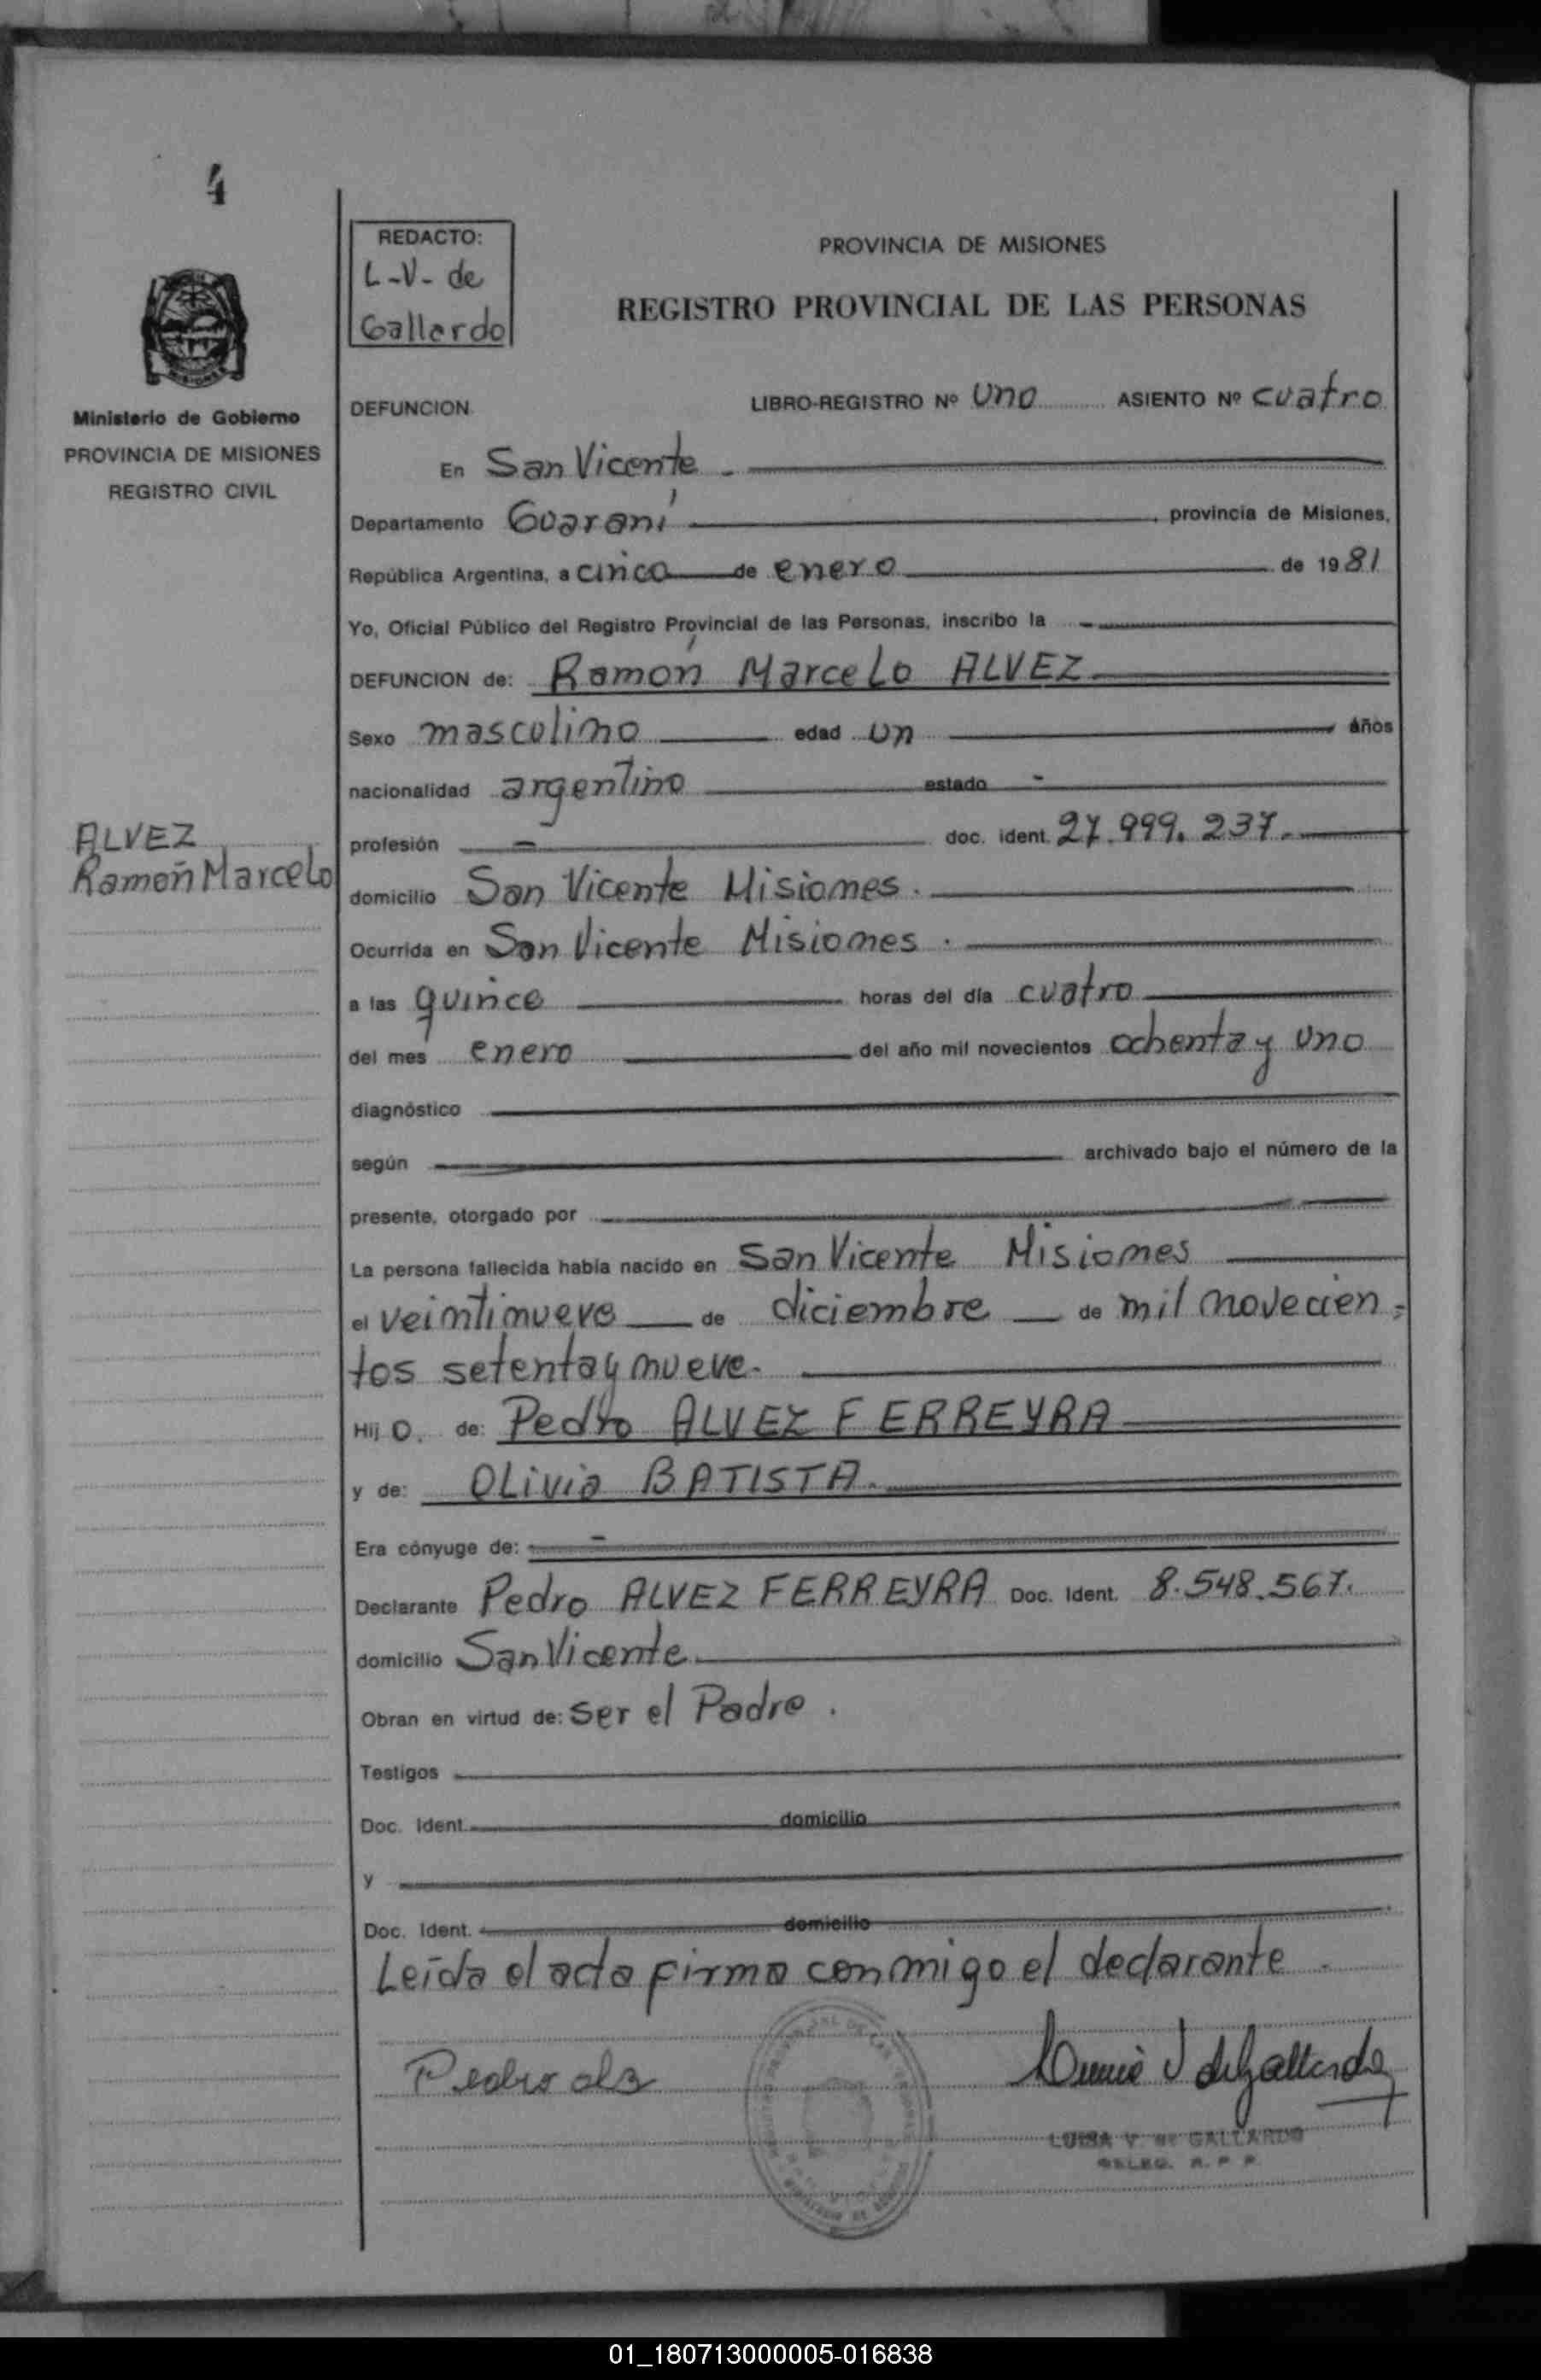 4
REDACTO:
L-V- de
Gallardo
PROVINCIA DE MISIONES
REGISTRO PROVINCIAL DE LAS PERSONAS
Ministerio de Gobierno
PROVINCIA DE MISIONES
REGISTRO CIVIL
DEFUNCION LIBRO-REGISTRO Nº Uno ASIENTO Nº cuatro
En San Vicente.
Departamento Guaraní, provincia de Misiones,
República Argentina, a cinco de enero de 1981
Yo, Oficial Público del Registro Provincial de las Personas, inscribo la
DEFUNCION de: Ramón Marcelo ALVEZ
Sexo masculino edad un años
nacionalidad argentino estado -
ALVEZ
Ramón Marcelo
profesión - doc. ident. 27.999.237.
domicilio San Vicente Misiones.
Ocurrida en San Vicente Misiones.
a las quince horas del día cuatro
del mes enero del año mil novecientos ochenta y uno
diagnóstico
según archivado bajo el número de la
presente, otorgado por
La persona fallecida había nacido en San Vicente Misiones
el veintinueve de diciembre de mil novecien-
tos setenta y nueve.
Hij o. de: Pedro ALVEZ FERREYRA
y de: Olivia BATISTA.
Era cónyuge de: -
Declarante Pedro ALVEZ FERREYRA Doc. Ident. 8.548.567.
domicilio San Vicente
Obran en virtud de: Ser el Padre.
Testigos
Doc. Ident. domicilio
y
Doc. Ident. domicilio
Leída el acta firma conmigo el declarante.
Pedro alz
LUISA V. de GALLARDO
DELEG. R. P. P.
01_180713000005-016838